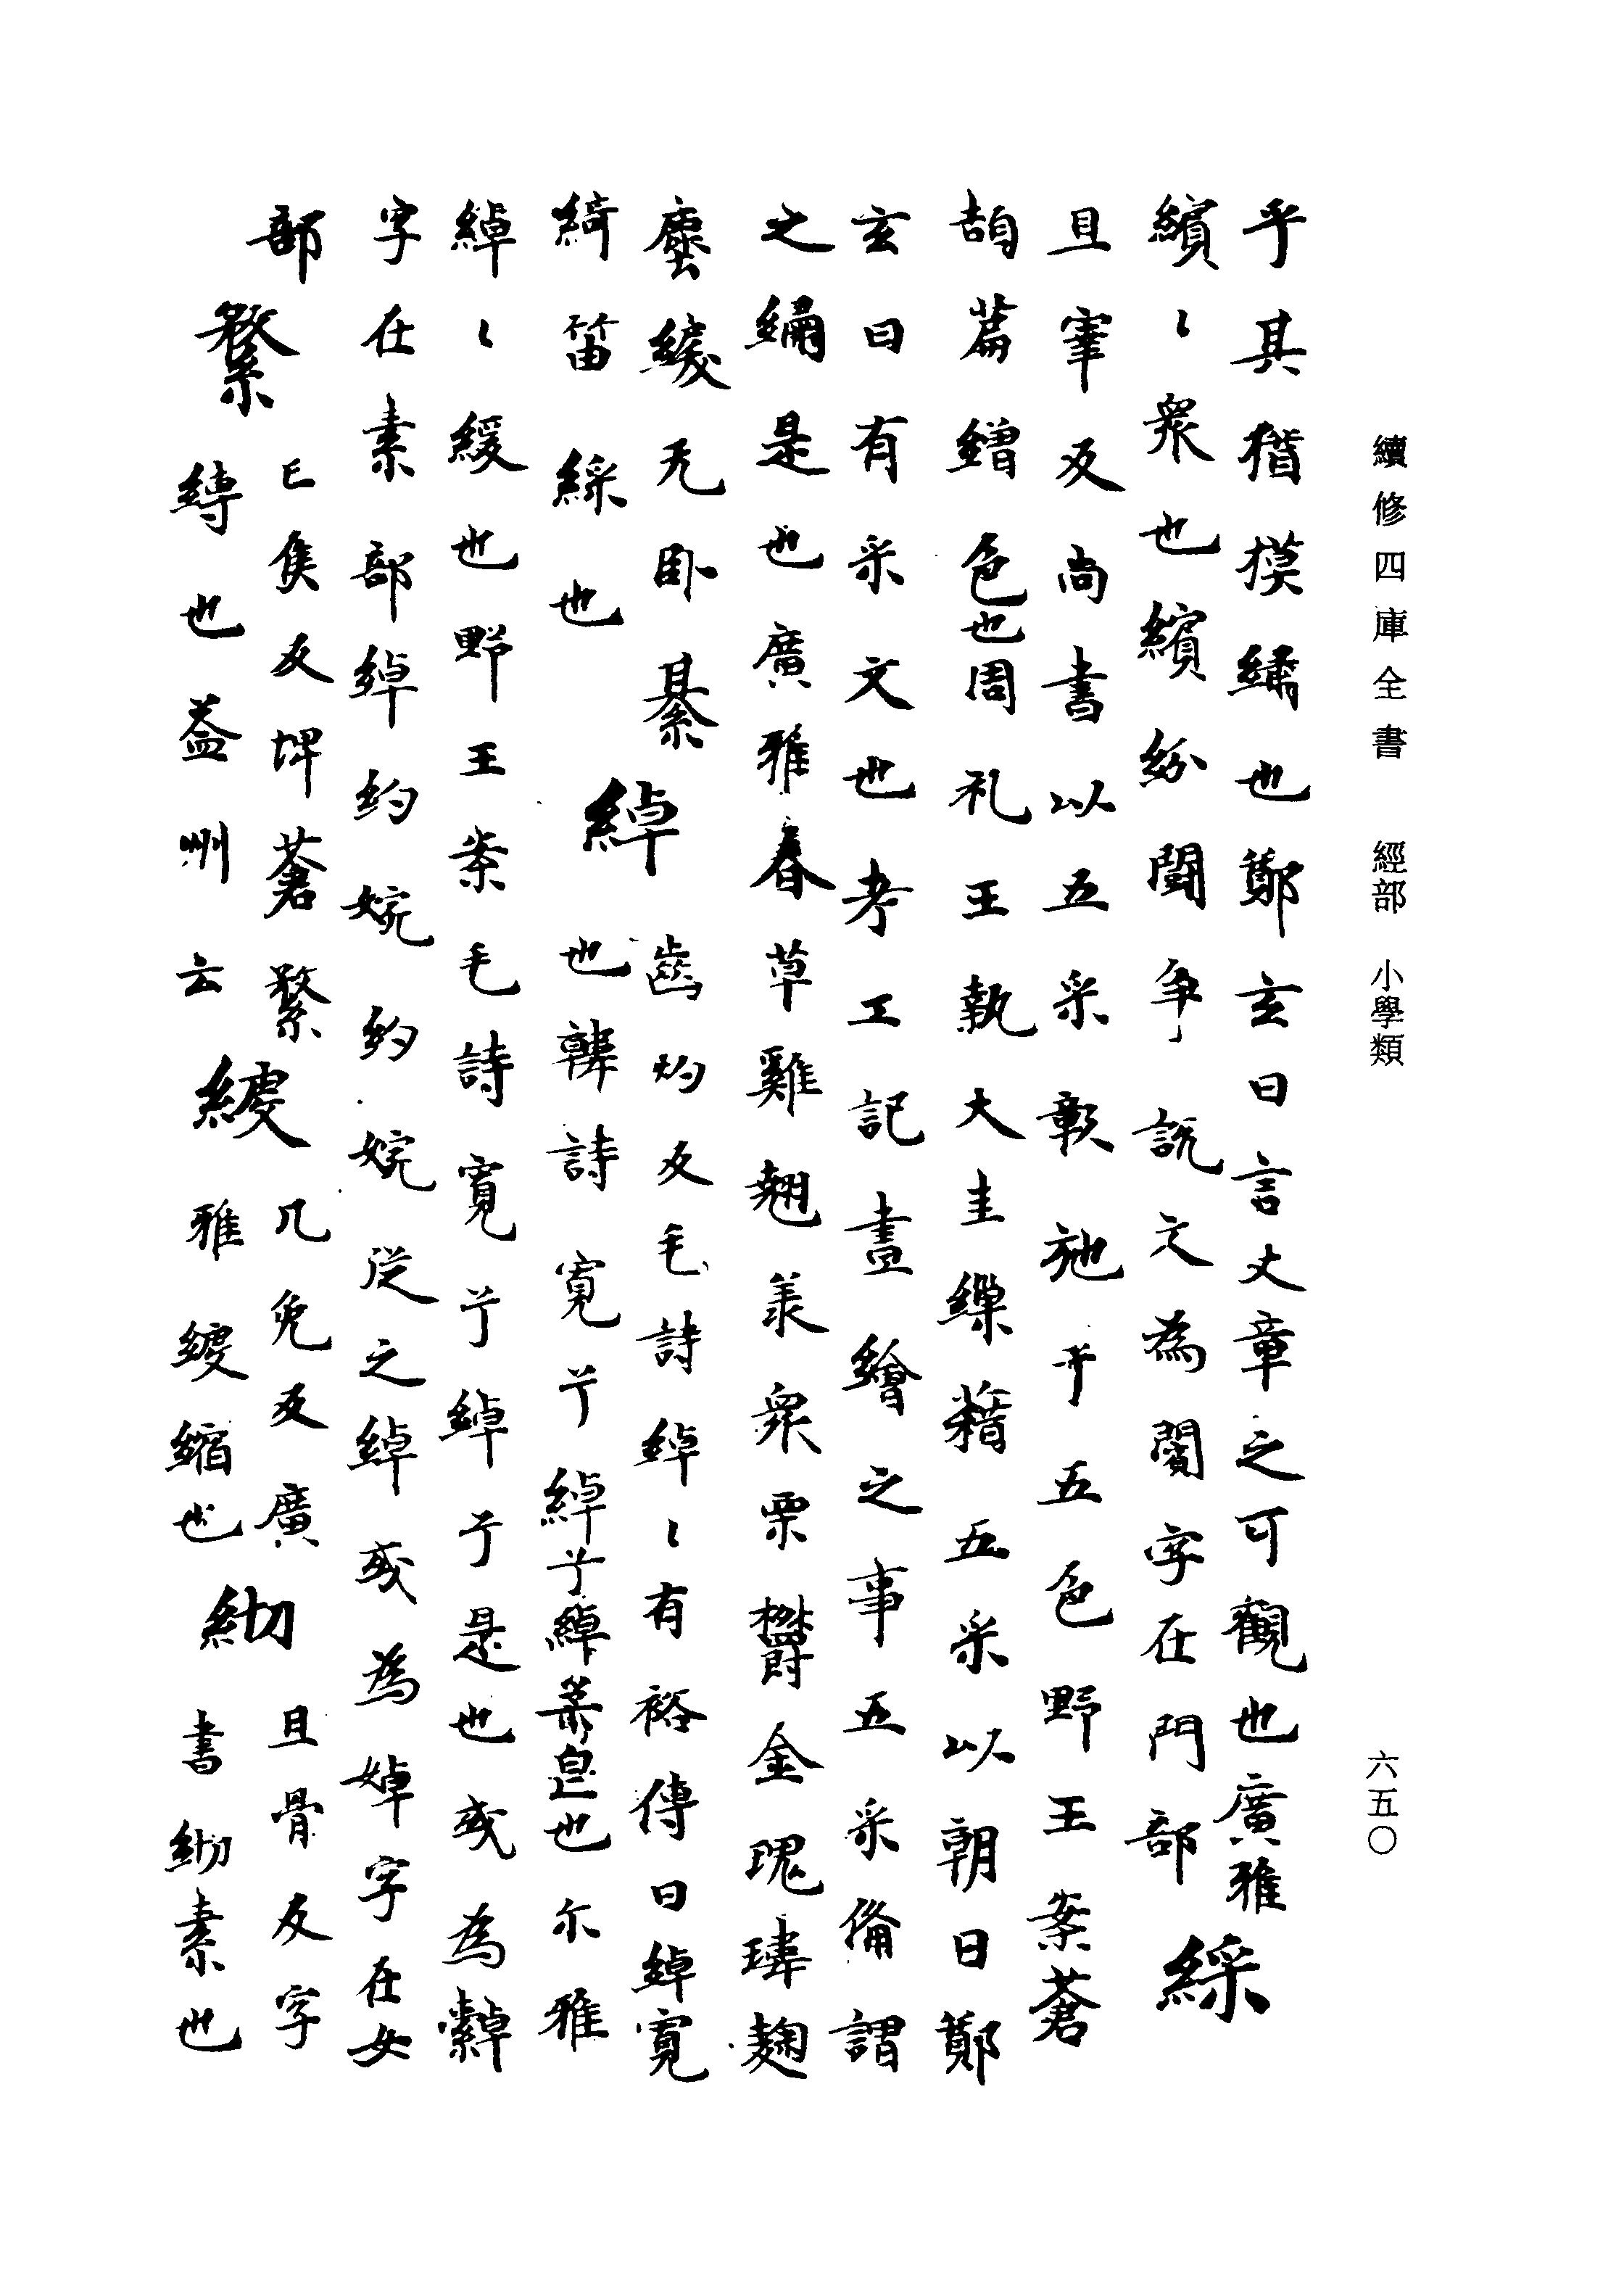 續修四庫全書 經部 小學類
六五〇
乎其猎摸繘也鄭玄曰言文章之可觀也廣雅
繽〻衆也繽紛鬪爭說文為䦰字在門部 綵
且宰反尚書以五采彰施于五色野王案蒼
頡篇繒色也周礼王執大圭繅藉五采以朝日鄭
玄曰有采文也考工記畫繪之事五采俻謂
之繡是也廣雅春草雞翹羕衆栗欝金瑰瑋麹
塵緩无卧綦
綺笛綵也 綽 齒灼反毛詩綽〻有裕傳曰綽寬
也韓詩寬兮綽兮綽皃也尓雅
綽〻緩也野王案毛詩寬兮綽兮是也或為繛
字在素部綽約婉約婉從之綽或為婥字在女
部 繁 亡隻反埤蒼繁
縳也益州云 緮 几免反廣
雅緮縮也 紉 且骨反字
書紉素也